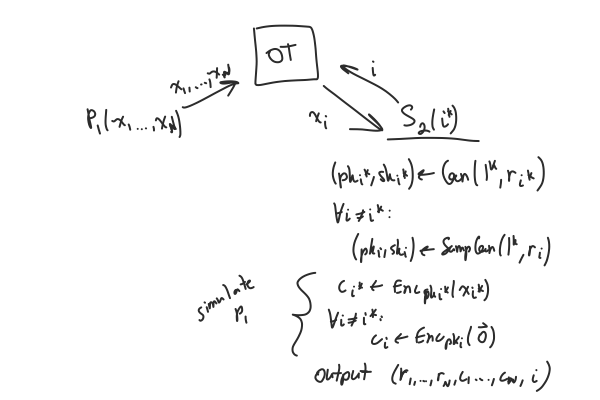 OT
x₁,...,x_N
i
P₁(x₁,...,x_N)
x_i
S₂(i*)
(pk_i*, sk_i*) ← Gen(1^k, r_i*)
∀i≠i*:
(pk_i, sk_i) ← SampGen(1^k, r_i)
simulate
P₁
c_i* ← Enc_pk_i*(x_i*)
∀i≠i*:
c_i ← Enc_pk_i(0⃗)
output (r₁,...,r_N, c₁,...,c_N, i)